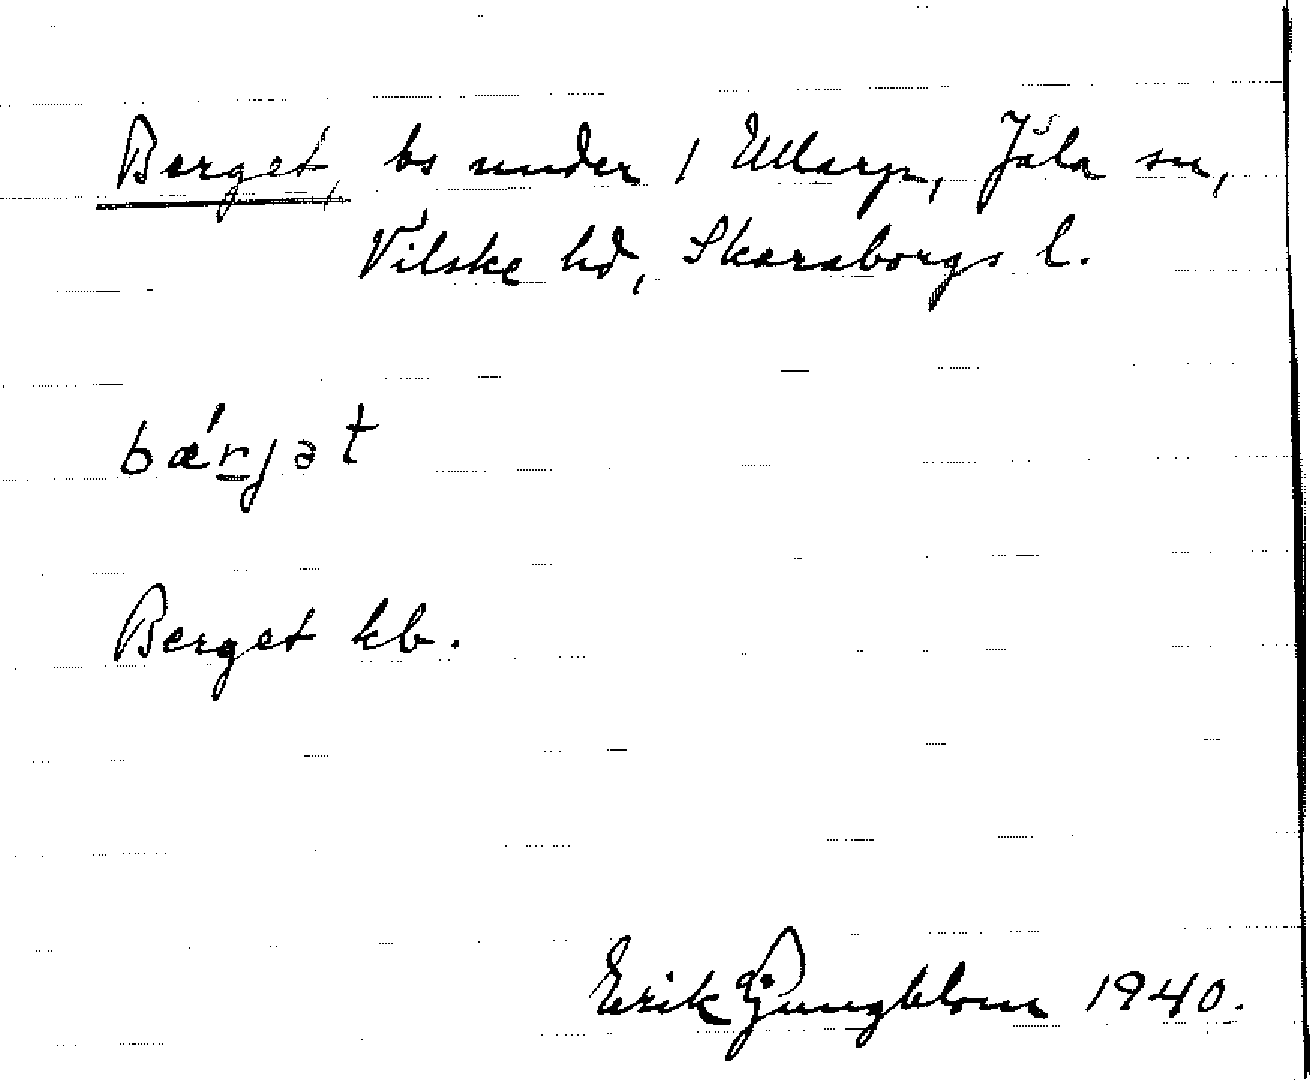 Berget, bs under 1 Ullarp, Jäla sn,
Vilske hd, Skaraborgs l.
bǽr̲jət
Berget kb.
Erik Ljungblom 1940.